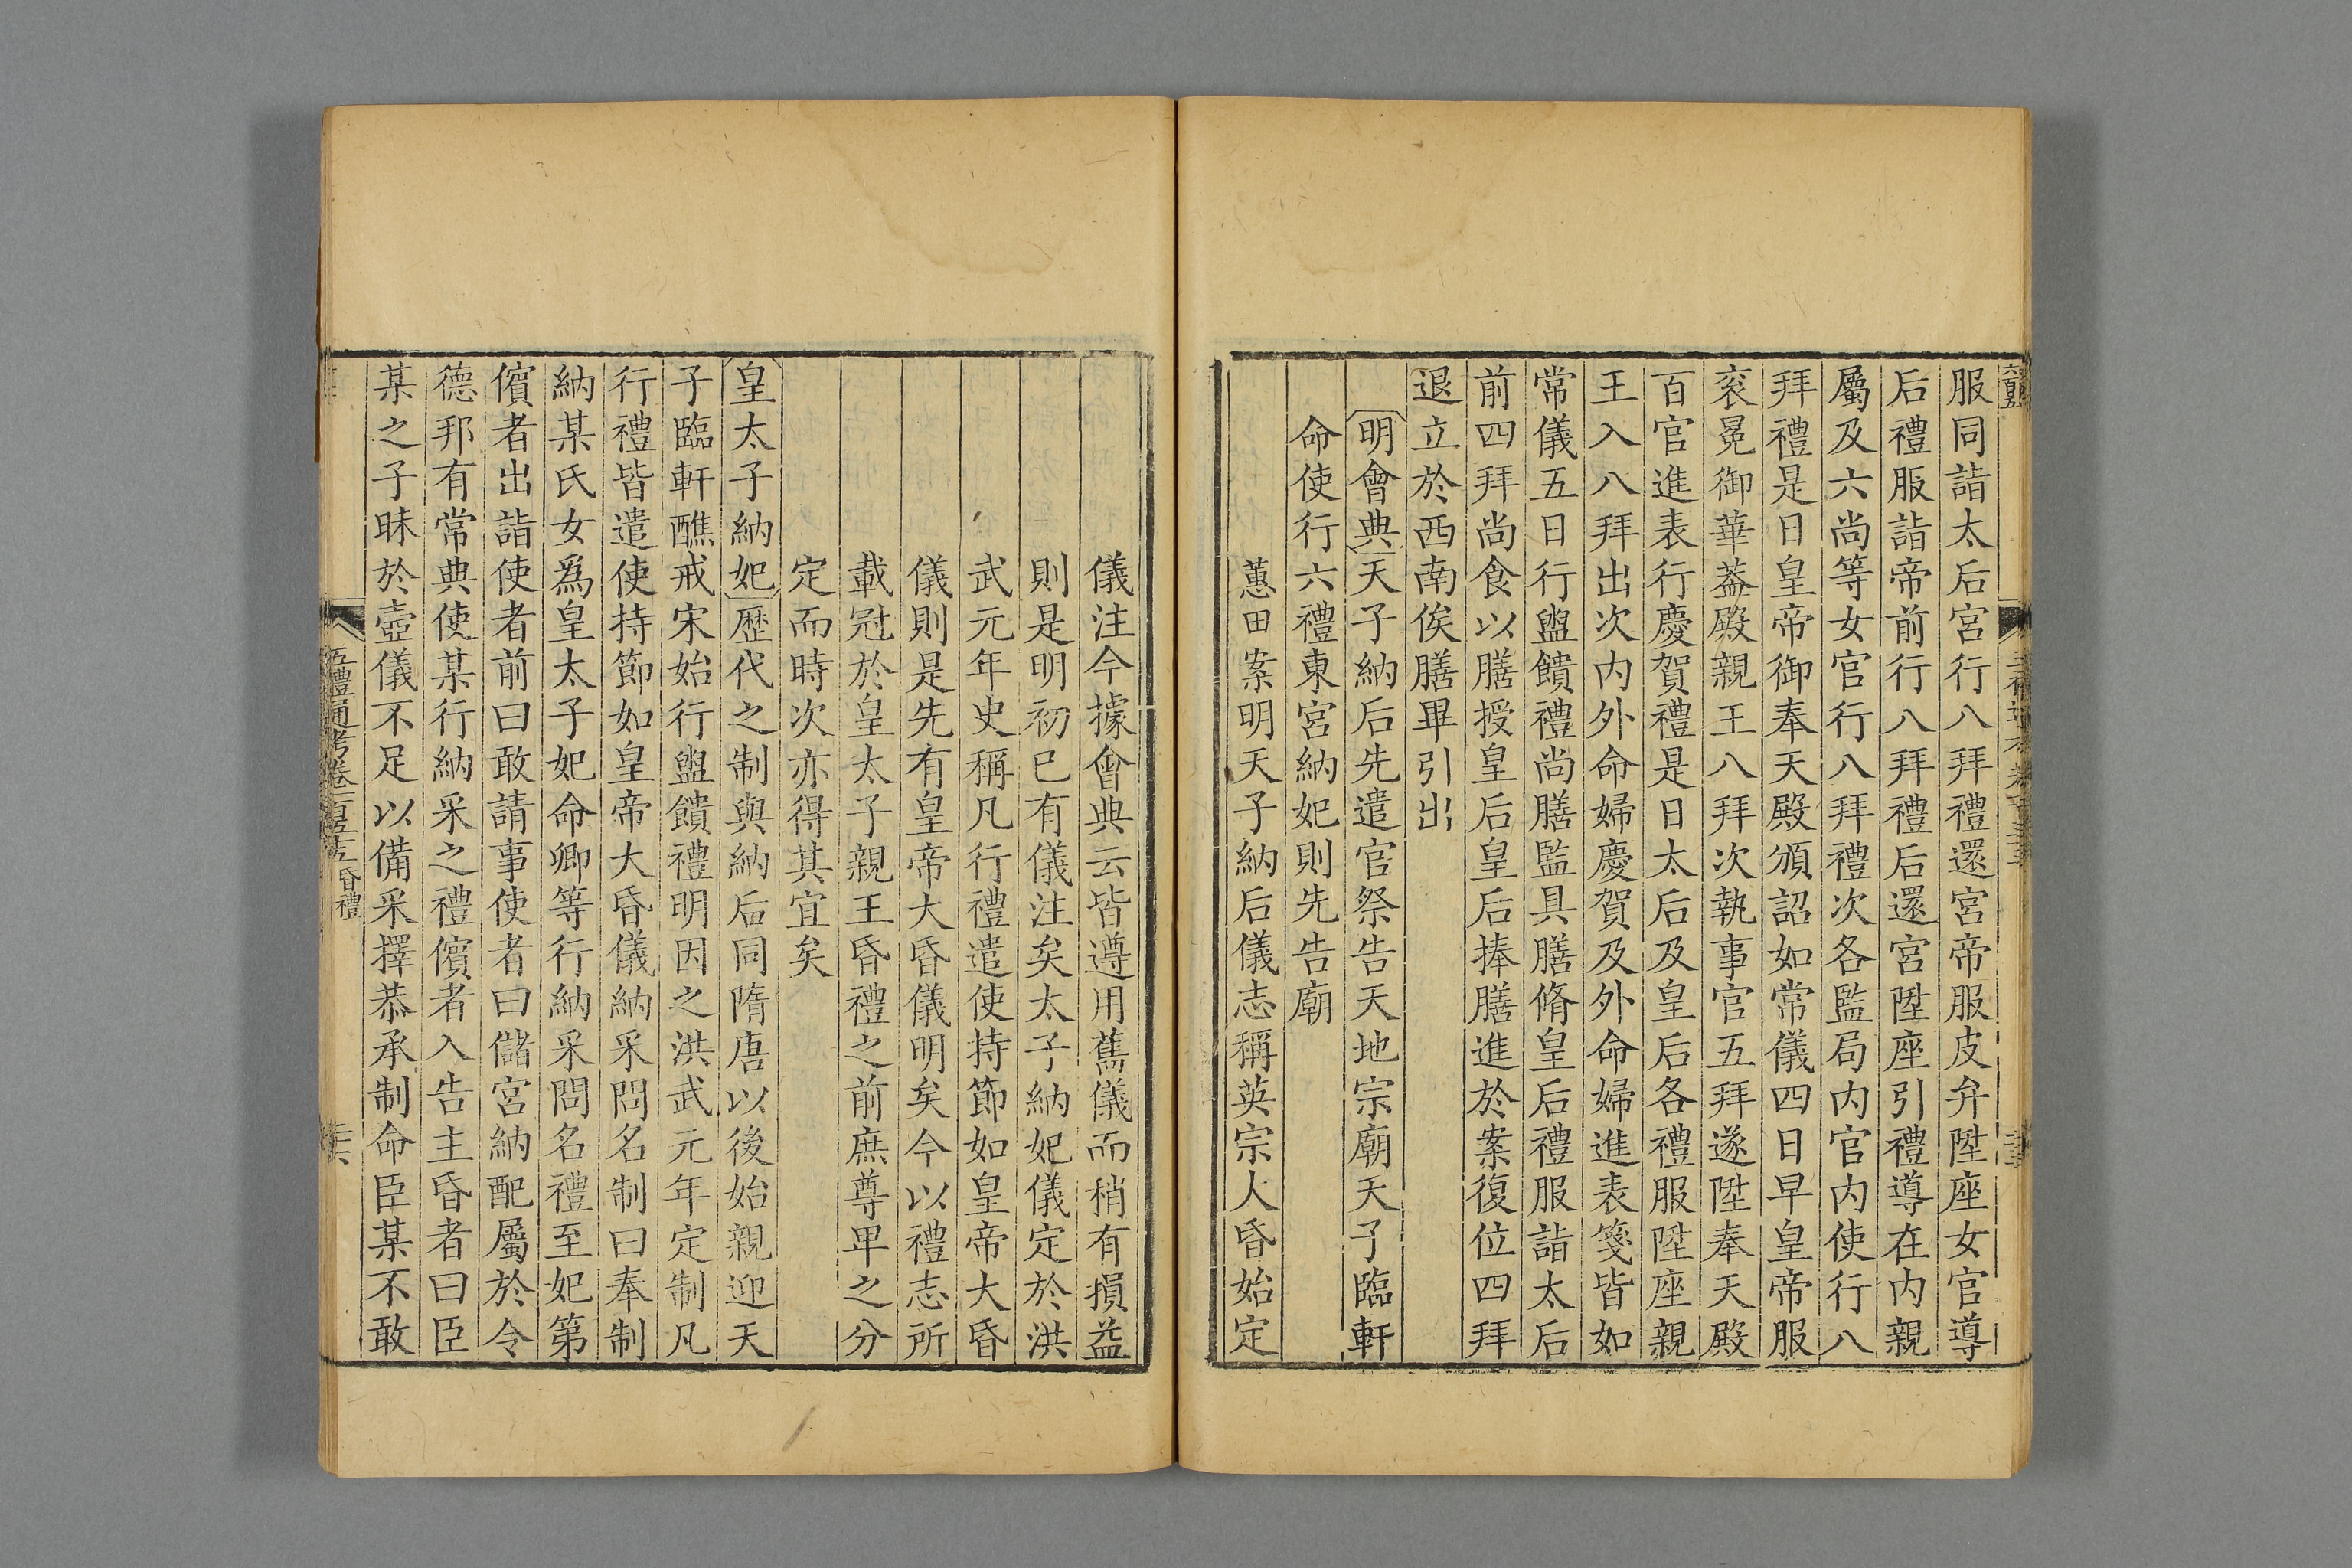 服同詣太后宮行八拜禮還宮帝服皮弁陞座女官導
后禮服詣帝前行八拜禮后還宮陞座引禮導在内親
屬及六尚等女官行八拜禮次各監局内官内使行八
拜禮是日皇帝御奉天殿頒詔如常儀四日早皇帝服
衮冕御華葢殿親王八拜次執事官五拜遂陞奉天殿
百官進表行慶賀禮是日太后及皇后各禮服陞座親
王入八拜出次内外命婦慶賀及外命婦進表箋皆如
常儀五日行盥饋禮尚膳監具膳脩皇后禮服詣太后
前四拜尚食以膳授皇后皇后捧膳進於案復位四拜
退立於西南俟膳畢引出
明會典天子納后先遣官祭告天地宗廟天子臨軒
命使行六禮東宮納妃則先告廟
蕙田案明天子納后儀志稱英宗人昏始定
儀注今據會典云皆遵用舊儀而稍有損益
則是明初已有儀注矣太子納妃儀定於洪
武元年史稱凡行禮遣使持節如皇帝大昏
儀則是先有皇帝大昏儀明矣今以禮志所
載冠於皇太子親王昏禮之前庶尊卑之分
定而時次亦得其宜矣
皇太子納妃歷代之制與納后同隋唐以後始親迎天
子臨軒醮戒宋始行盥饋禮明因之洪武元年定制凡
行禮皆遣使持節如皇帝大昏儀納采問名制曰奉制
納某氏女爲皇太子妃命卿等行納采問名禮至妃第
儐者出詣使者前曰敢請事使者曰儲宮納配屬於令
德邦有常典使某行納采之禮儐者入告主昏者曰臣
某之子昧於壼儀不足以備采擇恭承制命臣某不敢
五禮通考卷一百五十五昏禮